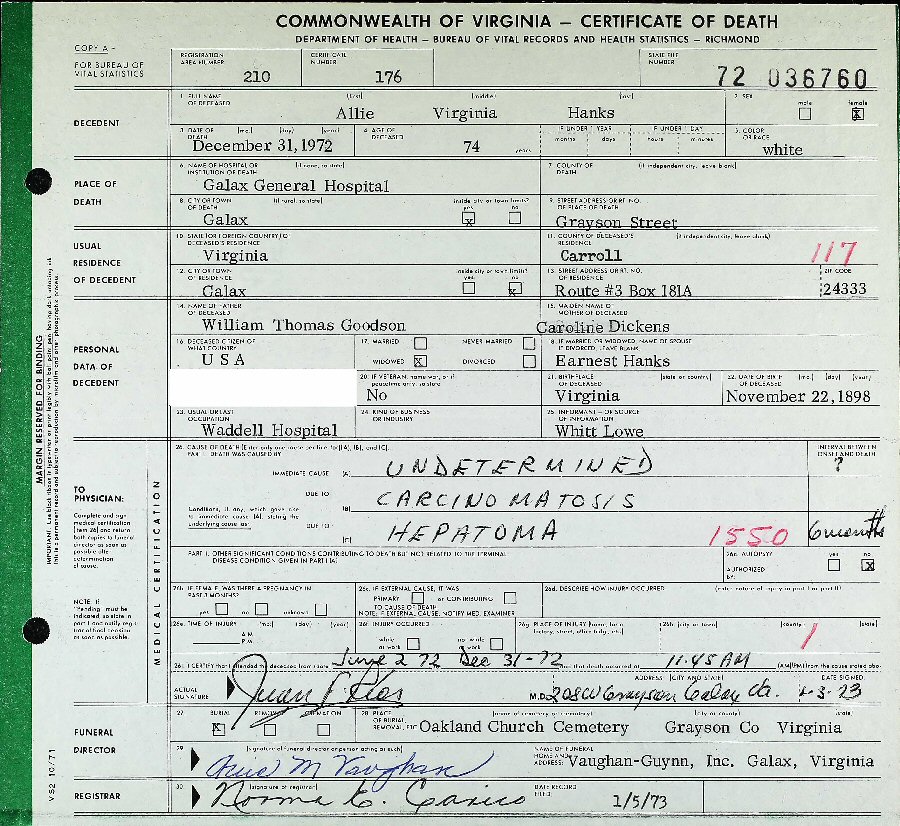 COMMONWEALTH OF VIRGINIA – CERTIFICATE OF DEATH
DEPARTMENT OF HEALTH – BUREAU OF VITAL RECORDS AND HEALTH STATISTICS – RICHMOND
COPY A –
FOR BUREAU OF
VITAL STATISTICS
REGISTRATION AREA NUMBER 210
CERTIFICATE NUMBER 176
STATE FILE NUMBER 72 036760
DECEDENT
1. FULL NAME OF DECEASED (first) (middle) (last)
Allie Virginia Hanks
2. SEX male female X
3. DATE OF DEATH (mo.) (day) (year)
December 31,1972
4. AGE OF DECEASED 74 years
IF UNDER 1 YEAR months days
IF UNDER 1 DAY hours minutes
5. COLOR OR RACE white
PLACE OF DEATH
6. NAME OF HOSPITAL OR INSTITUTION OF DEATH (if none, so state)
Galax General Hospital
7. COUNTY OF DEATH (if independent city, leave blank)
8. CITY OR TOWN OF DEATH (if rural, so state)
Galax
inside city or town limits? yes X no
9. STREET ADDRESS OR RT. NO. OF PLACE OF DEATH
Grayson Street
USUAL RESIDENCE OF DECEDENT
10. STATE (OR FOREIGN COUNTRY) OF DECEASED'S RESIDENCE
Virginia
11. COUNTY OF DECEASED'S RESIDENCE (if independent city, leave blank)
Carroll
117
12. CITY OR TOWN OF RESIDENCE
Galax
inside city or town limits? yes no X
13. STREET ADDRESS OR RT. NO. OF RESIDENCE
Route #3 Box 181A
ZIP CODE 24333
PERSONAL DATA OF DECEDENT
14. NAME OF FATHER OF DECEASED
William Thomas Goodson
15. MAIDEN NAME OF MOTHER OF DECEASED
Caroline Dickens
16. DECEASED CITIZEN OF WHAT COUNTRY
U S A
17. MARRIED NEVER MARRIED
WIDOWED X DIVORCED
18. IF MARRIED OR WIDOWED, NAME OF SPOUSE
IF DIVORCED, LEAVE BLANK
Earnest Hanks
20. IF VETERAN, name war, or if peacetime only, so state
No
21. BIRTHPLACE OF DECEASED (state or country)
Virginia
22. DATE OF BIRTH OF DECEASED (mo.) (day) (year)
November 22,1898
23. USUAL OR LAST OCCUPATION
Waddell Hospital
24. KIND OF BUSINESS OR INDUSTRY
25. INFORMANT – OR SOURCE OF INFORMATION
Whitt Lowe
MARGIN RESERVED FOR BINDING
TO PHYSICIAN:
Complete and sign
medical certification
(item 26) and return
both copies to funeral
director as soon as
possible after
determination
of cause.
NOTE: If
"Pending" must be
indicated, so state in
part I and notify regis-
trar of final decision
as soon as possible.
MEDICAL CERTIFICATION
26. CAUSE OF DEATH (Enter only one cause per line for (A), (B), and (C).
PART I. DEATH WAS CAUSED BY
INTERVAL BETWEEN ONSET AND DEATH
IMMEDIATE CAUSE (A) UNDETERMINED ?
DUE TO (B) CARCINOMATOSIS
Conditions, if any, which gave rise
to immediate cause (A), stating the
underlying cause last.
DUE TO (C) HEPATOMA 1550 6 months
PART II. OTHER SIGNIFICANT CONDITIONS CONTRIBUTING TO DEATH BUT NOT RELATED TO THE TERMINAL
DISEASE CONDITION GIVEN IN PART I (A)
26a. AUTOPSY? yes no X
AUTHORIZED BY:
26b. IF FEMALE, WAS THERE A PREGNANCY IN PAST 3 MONTHS?
yes no unknown
26c. IF EXTERNAL CAUSE, IT WAS
PRIMARY or CONTRIBUTING
TO CAUSE OF DEATH
NOTE: IF EXTERNAL CAUSE, NOTIFY MED. EXAMINER
26d. DESCRIBE HOW INJURY OCCURRED (enter nature of injury in part I or part II)
26e. TIME OF INJURY (mo.) (day) (year)
A.M.
P.M.
26f. INJURY OCCURRED
while at work not while at work
26g. PLACE OF INJURY (home, farm, factory, street, office bldg., etc.)
26h. (city or town) (county) (state)
1
26i. I CERTIFY that I attended the deceased from June 2 72 Dec 31-72 and that death occurred at 11:45 AM (AM) (PM) from the cause stated above
ACTUAL SIGNATURE
M.D.
ADDRESS (CITY AND STATE)
208 W Grayson Galax Va.
DATE SIGNED
FUNERAL DIRECTOR
27. BURIAL X REMOVAL CREMATION
28. PLACE OF BURIAL, REMOVAL, ETC. (name of cemetery or crematory) (city or county) (state)
Oakland Church Cemetery Grayson Co Virginia
29. (signature of funeral director or person acting as such)
M Vaughan
NAME OF FUNERAL HOME AND ADDRESS: Vaughan-Guynn, Inc. Galax, Virginia
REGISTRAR
30. (signature of registrar)
Norma
DATE RECORD FILED 1/5/73
VS2 10/71